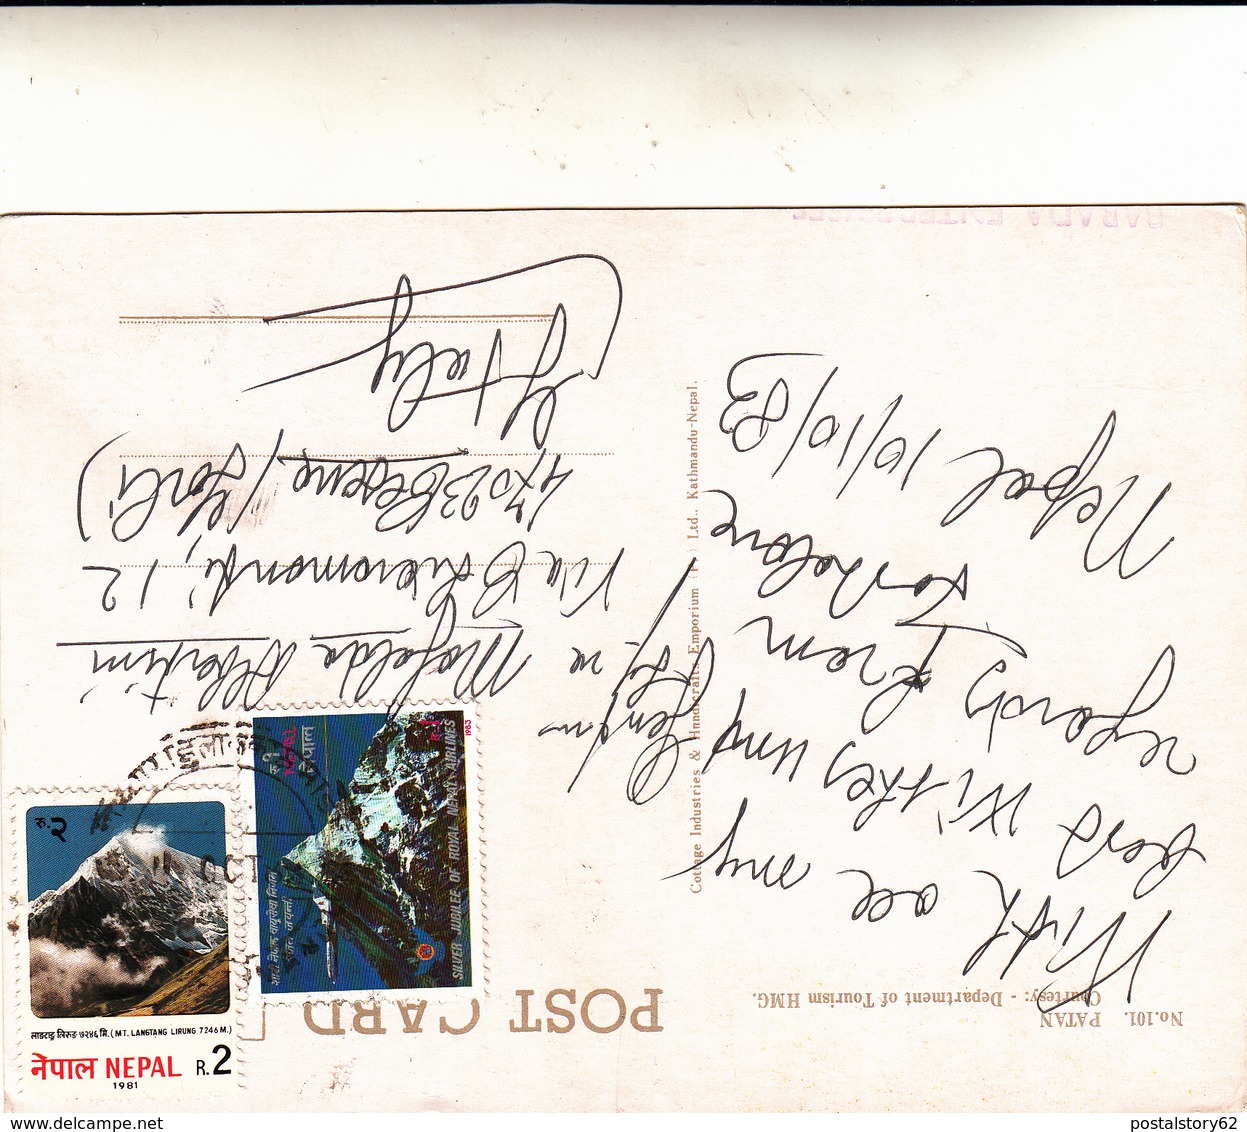 BARADA ENTERPRISES
No.101. PATAN
Courtesy: - Department of Tourism HMG.
With all my
best wishes und
regards from
Nepal 10/10/83
Cottage Industries & Handicrafts Emporium ( ) Ltd., Kathmandu-Nepal.
POST CARD
Mafalda Albertini
Via 12
47023 Cesena (Forlì)
Italy
रु. २
लाङटाङ्ग लिरुङ ७२४६ मि. (MT. LANGTANG LIRUNG 7246M.)
नेपाल NEPAL R. 2
1981
रु १ नेपाल
NEPAL R 1
1983
शाही नेपाल वायुसेवा निगम
रजत जयन्ती
SILVER JUBILEE OF ROYAL NEPAL AIRLINES
OCT
www.delcampe.net
postalstory62